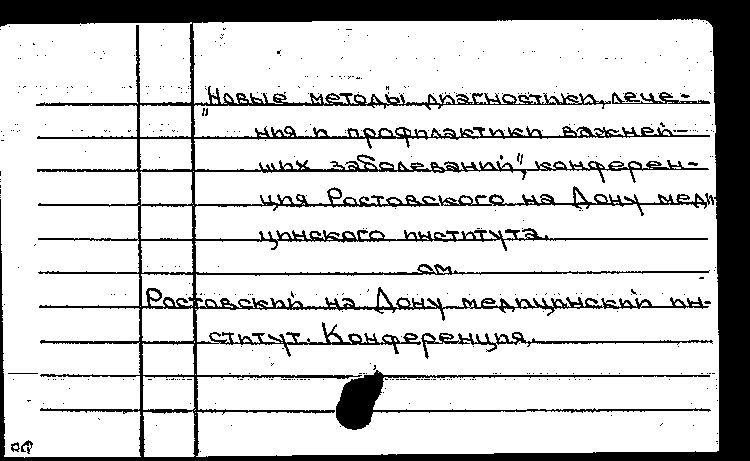 "Новые методы диагностики, лече-
ния и профилактики важней-
ших заболеваний", конферен-
ция Ростовского на Дону меди-
цинского института.
см.
Ростовский на Дону медицинский ин-
ститут. Конференция.